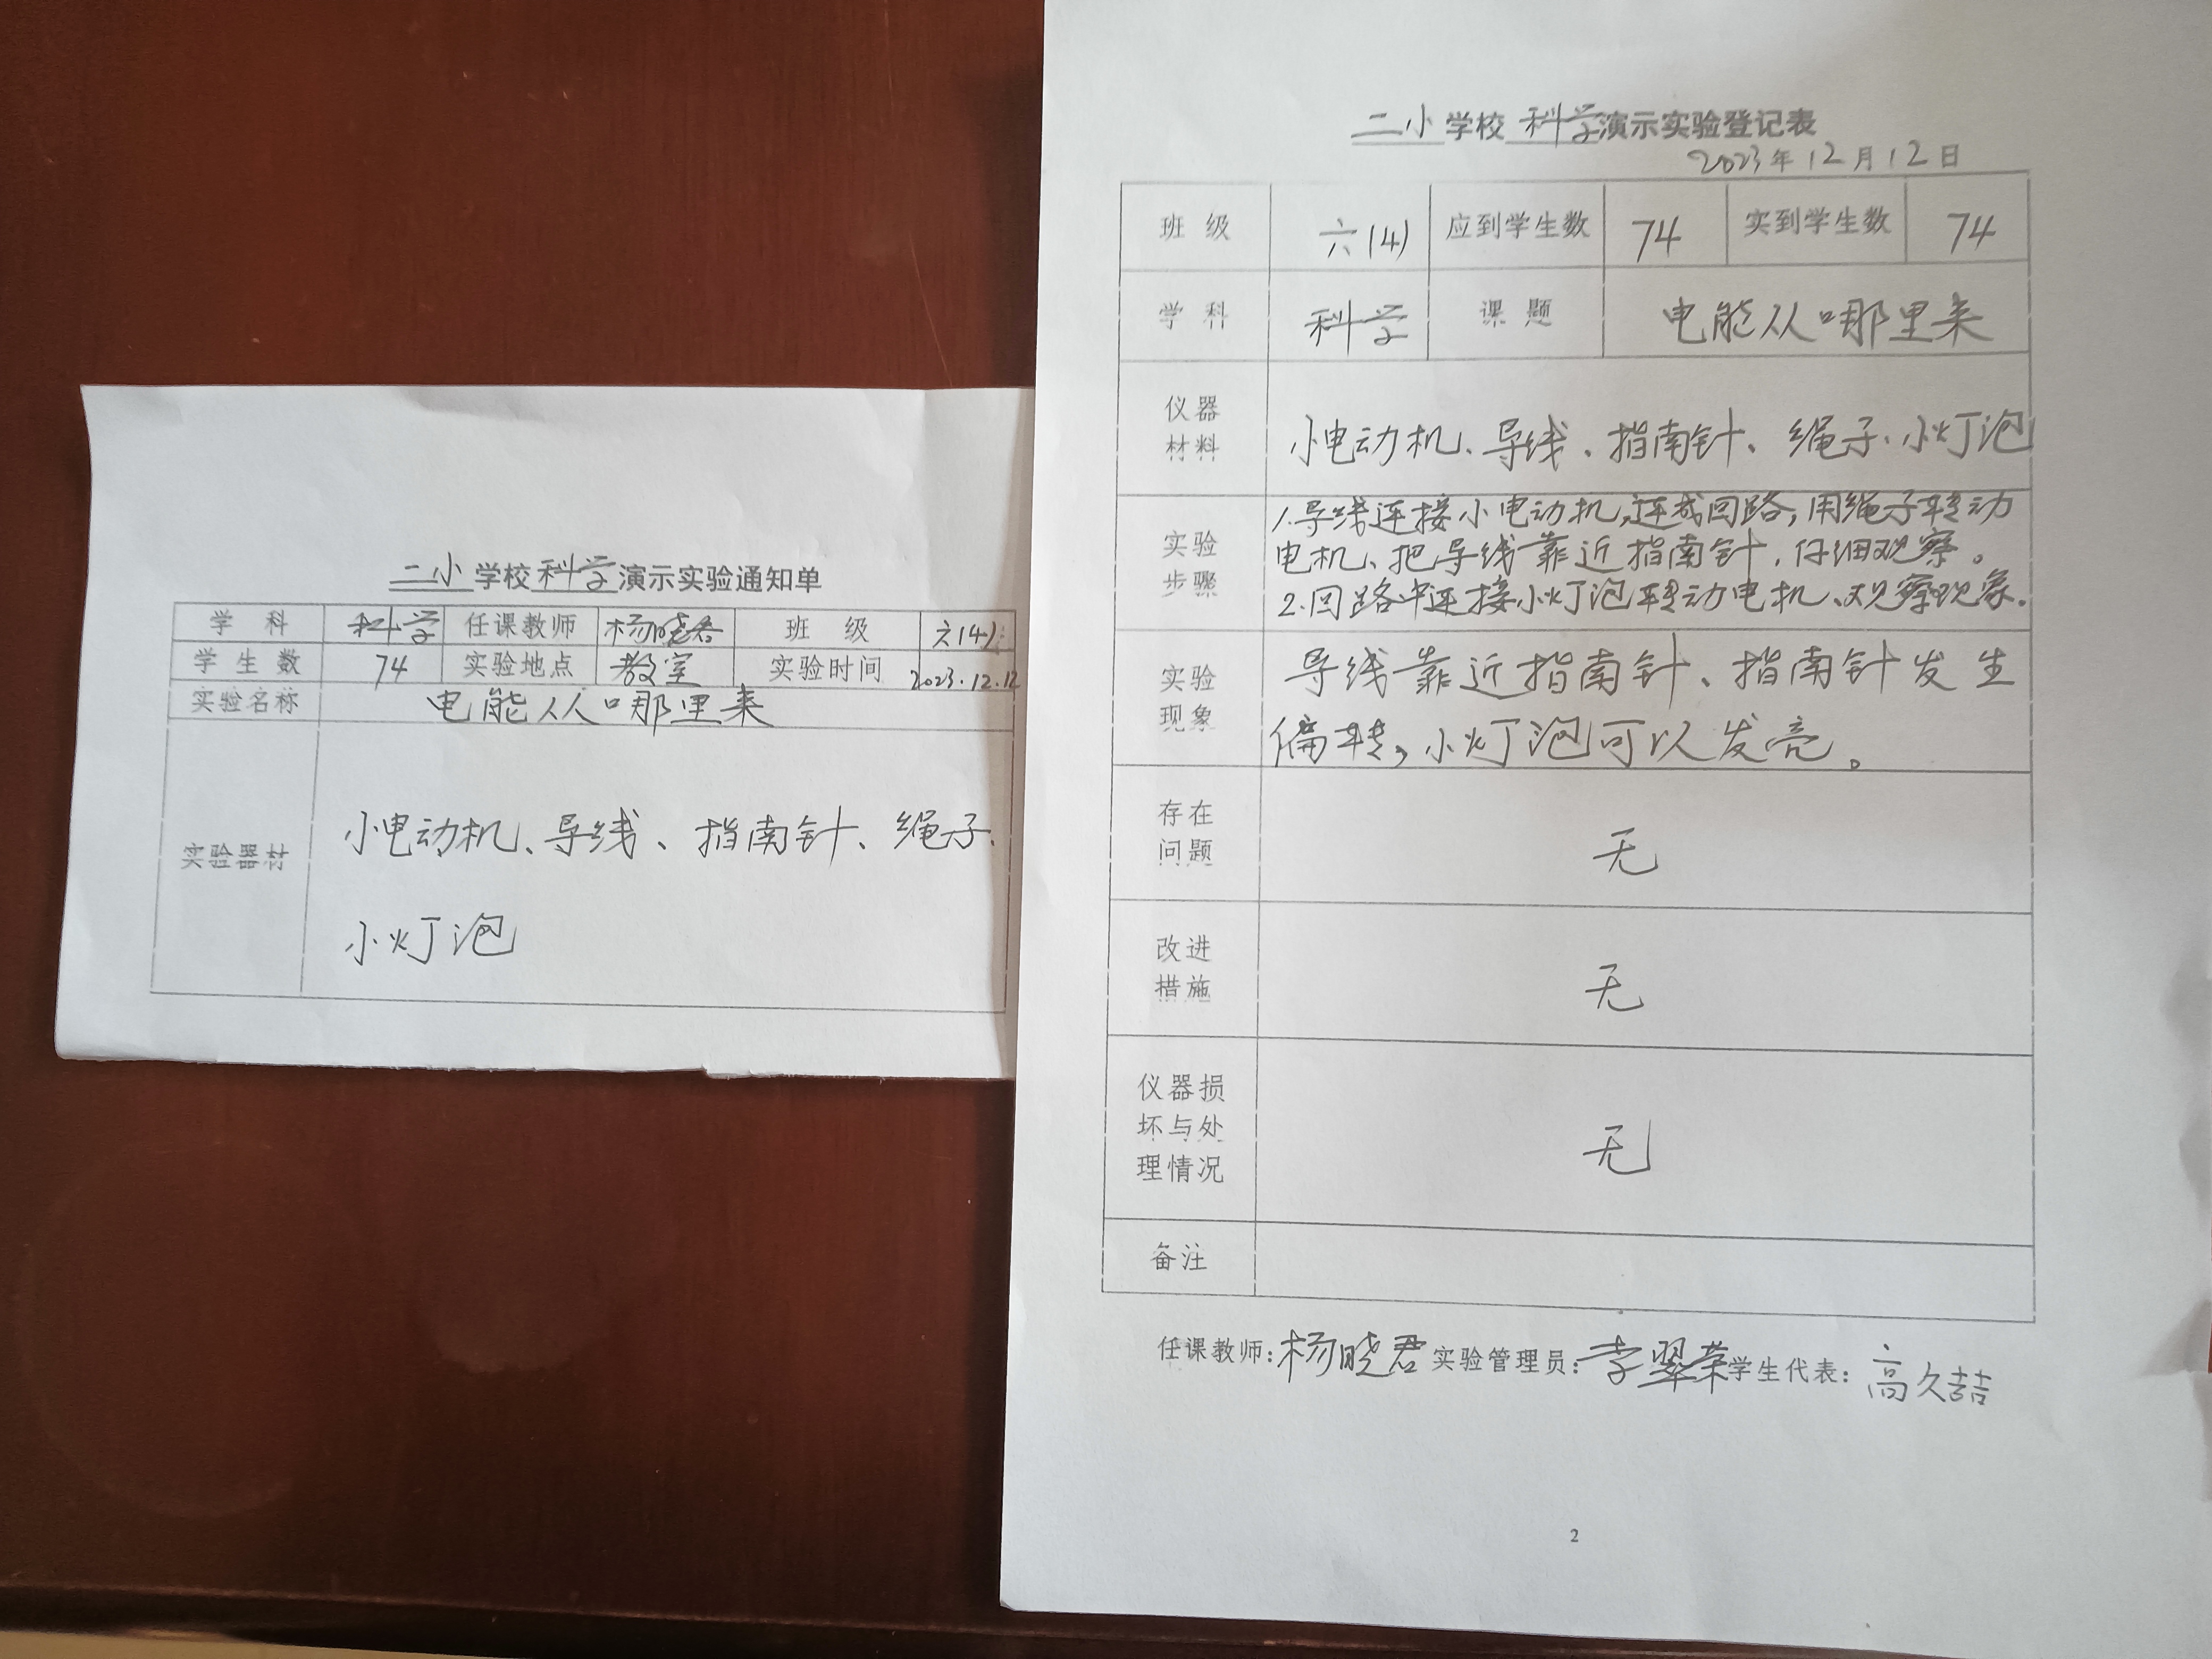 二小学校科学演示实验通知单
学科 科学 任课教师 杨晓君 班级 六(4)
学生数 74 实验地点 教室 实验时间 2023.12.12
实验名称 电能从哪里来
实验器材 小电动机、导线、指南针、绳子、
小灯泡
二小学校科学演示实验登记表
2023年12月12日
班级 六(4) 应到学生数 74 实到学生数 74
学科 科学 课题 电能从哪里来
仪器
材料
小电动机、导线、指南针、绳子、小灯泡
实验
步骤
1.导线连接小电动机,连成回路,用绳子转动
电机、把导线靠近指南针,仔细观察。
2.回路中连接小灯泡转动电机、观察现象.
实验
现象
导线靠近指南针、指南针发生
偏转,小灯泡可以发亮。
存在
问题
无
改进
措施
无
仪器损
坏与处
理情况
无
备注
任课教师:杨晓君 实验管理员:李翠荣 学生代表:高久喆
2